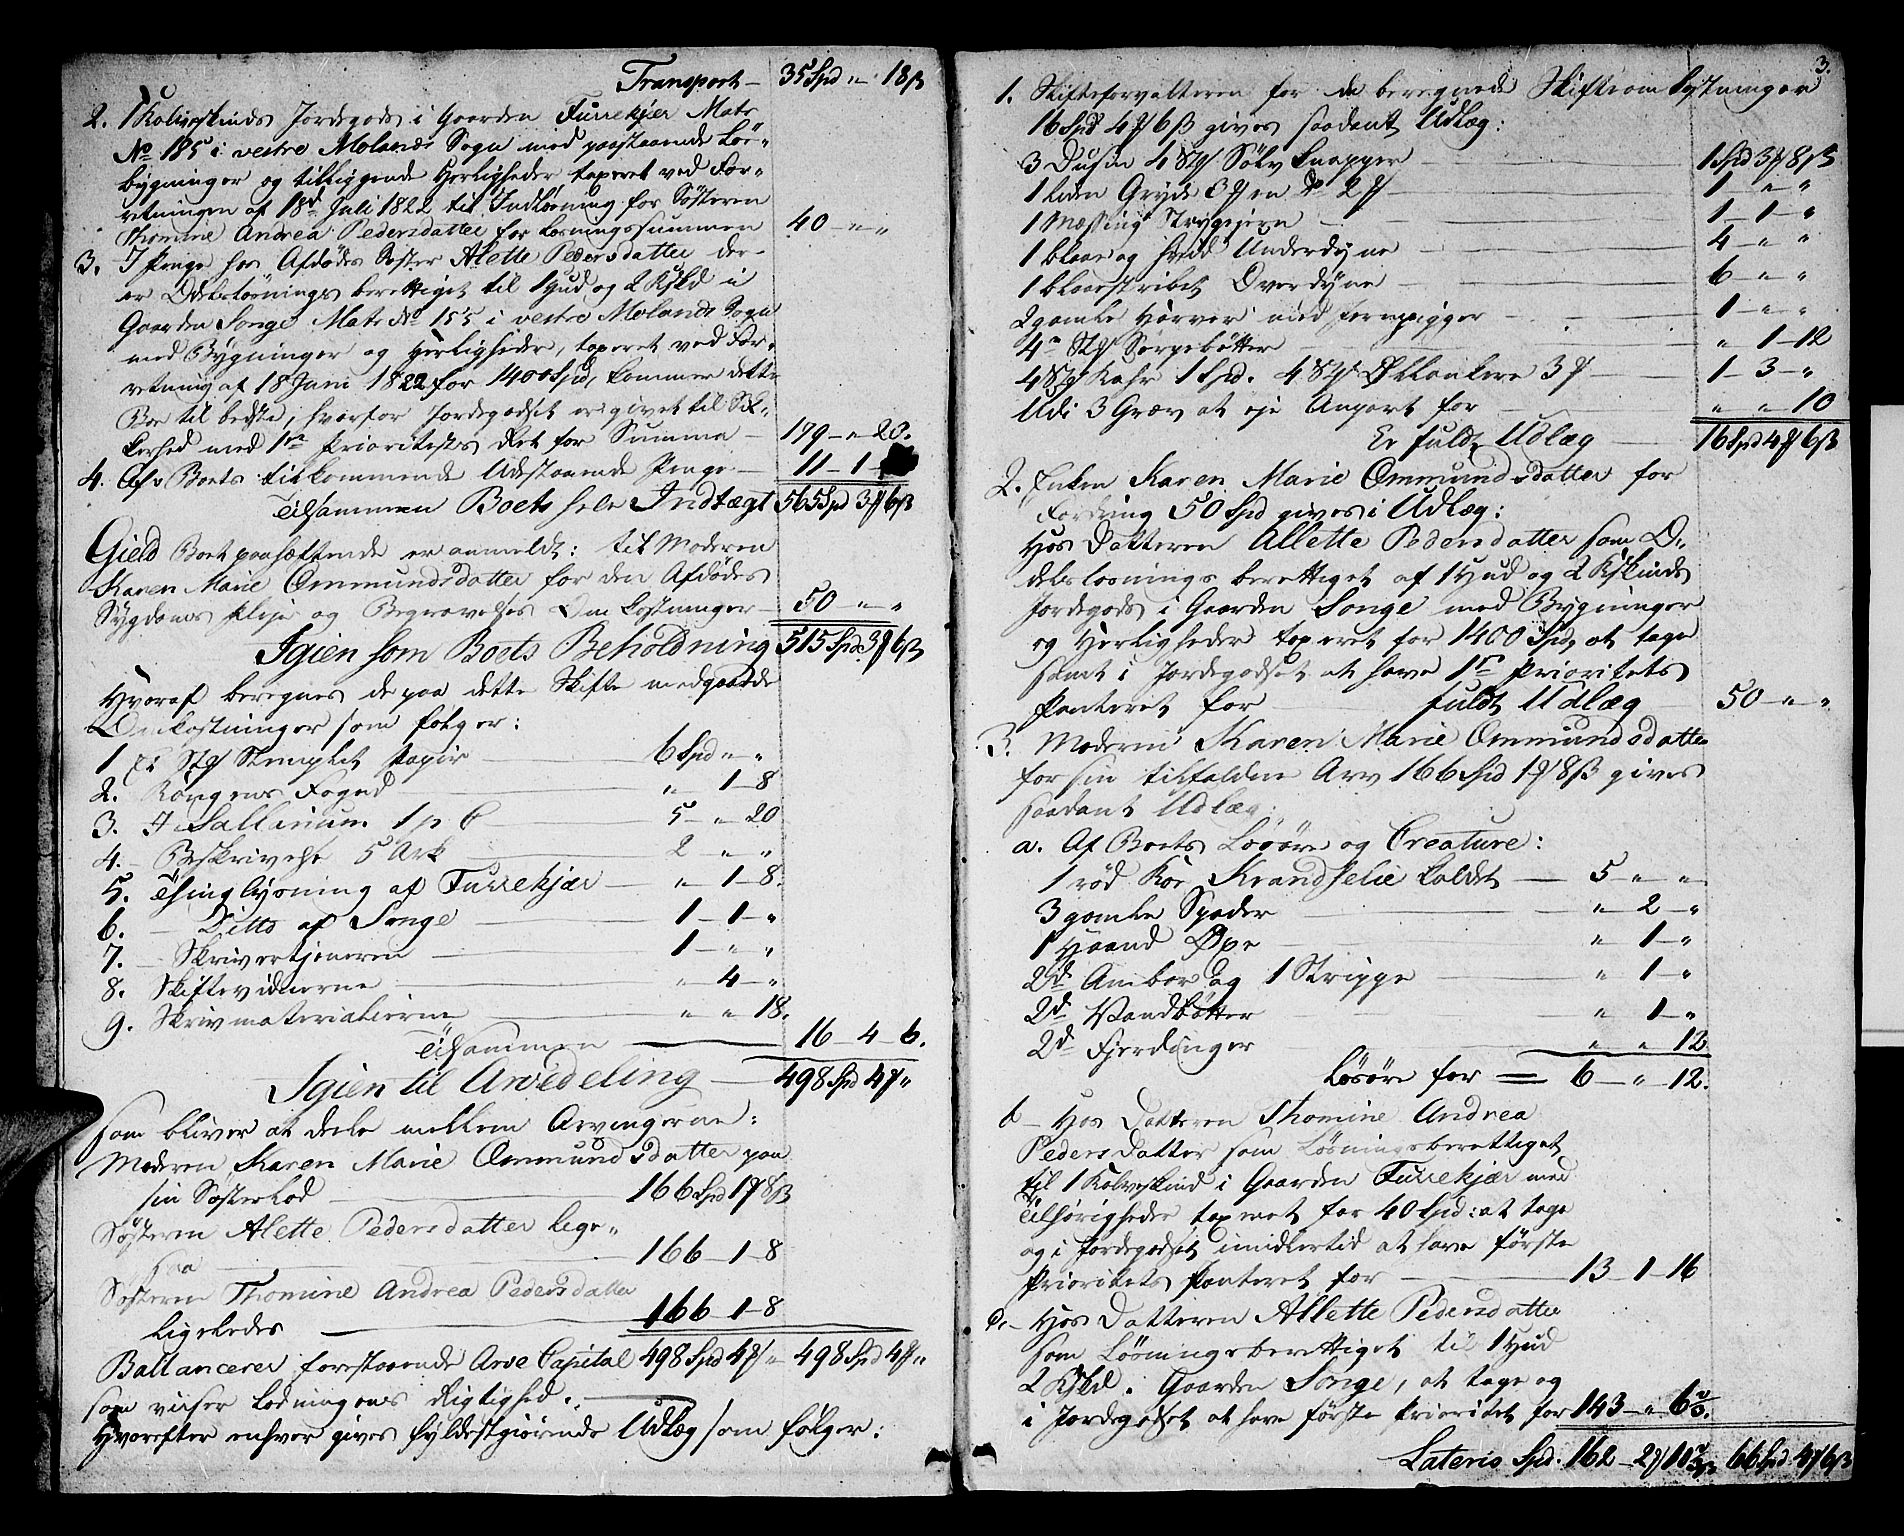 Transport — 35 Spd „ 18 ß
2. 1 Kalveskinds Jordegods i Gaarden Furrekjær Matr
No 185 i vestre Molands Sogn med paastaaende Løe-
bygninger og tilliggende Herligheder, taxeret ved For-
retningen af 18d Juli 1822 til Indløsning for Søsteren
Thomine Andrea Pedersdatter for Løsningssummen 40 — „ „
3. I Penge hos Afdødes Søster Alette Pedersdatter der
er Odelsløsnings berettiget til 1 Hud og 2 Kskd i
Gaarden Songe Matr No 155 i vestre Molands Sogn
med Bygninger og Herligheder, taxeret ved For-
retning af 18 Juni 1822 for 1400 Spd, kommer dette
Boe til bedste, hvorfor Jordegodset er givet til Sik-
kerhed med 1ste Prioritets Ret for Summa — 179 — „ 20.
4. Boets tilkommende Udestaaende Penge — 11 — 1 —
Tilsammen Boets hele Indtægt 565 Spd 3 ₰ 6 ß
Gield Boet paahæftende er anmeldt: til Moderen
Karen Marie Ommundsdatter for den Afdødes
Sygdoms Pleje og Begravelses Omkostninger — 50 — „ „
Igien som Boets Beholdning 515 Spd 3 ₰ 6 ß
Hvoraf beregnes de paa dette Skifte medgaaede
Omkostninger som følger:
1. Stemplet Papir — 6 Spd „ „
2. Kongens Foged — „ 1 — 8
3. I Sallarium 1 p C — 5 — „ 20
4. Beskrivelse 5 Ark — 2 „ „
5. Thinglysning af Furrekjær — „ 1 — 8.
6. — Ditto af Songe — 1 — 1 — „
7. — Skrivertjeneren — 1 — „ „
8. Skiftevidnerne — „ 4 — „
9. Skrivmaterialierne — „ „ 18.
Tilsammen — 16 — 4 — 6.
Igien til Arvedeling — 498 Spd 4 ₰ „
som bliver at dele mellem Arvingerne:
Moderen Karen Marie Ommundsdatter paa
sin Søsterlod — 166 Spd 1 ₰ 8 ß
Søsteren Alette Pedersdatter lige-
saa — 166 — 1 — 8
Søsteren Thomine Andrea Pedersdatter
ligeledes — 166 — 1 — 8
Ballancerer forestaaende Arve Capital 498 Spd 4 ₰ „ 498 Spd 4 ₰ „
som viiser Lodningens Rigtighed.
Hvorefter enhver gives fyldestgiørende Udlæg som følger:
3.
1. Skifteforvalteren for de beregnede Skifteomkostninger
16 Spd 4 ₰ 6 ß gives saadant Udlæg:
3 Dusin 4 Stk Sølv Knapper — 1 Spd 3 ₰ 8 ß
1 liden Gryde 3 ₰ en do 2 ₰ — 1 — „ „
1 Messing Strygejern — 1 — 1 — „
1 blaae og hvid Underdyne — 4 — „ „
1 blaaestribet Overdyne — 6 — „ „
2 gamle Harver med Jernpigger — 1 — „ „
4re Stk Sorpebøtter — „ 1 — 12
4 Stk Kahr 1 Spd. 4 Stk Øltankere 3 ₰ — 1 — 3 — „
Udi 3 Græv at eje Anpart for — „ „ 10
Er fuldt Udlæg — 16 Spd 4 ₰ 6 ß
2. Enken Karen Marie Ommundsdatter for
Fordring 50 Spd gives i Udlæg:
Hos Datteren Allette Pedersdatter som O-
delsløsnings berettiget af 1 Hud og 2 Kskinds
Jordegods i Gaarden Songe med Bygninger
og Herligheder taxeret for 1400 Spd, at tage
samt i Jordegodset at have 1ste Prioritets
Panteret for — fuldt Udlæg — 50 — „ „
3. Moderen Karen Marie Ommundsdatter
for sin tilfaldne Arv 166 Spd 1 ₰ 8 ß gives
saadant Udlæg:
a. Af Boets Løsøre og Creature:
1 rød Koe Krandselie kaldet — 5 „ „
3 gamle Spader — „ 2 — „
1 Haand Øxe — „ 1 — „
2de Ambar og 1 Strippe — „ 1 — „
2de Vandbøtter — „ 1 — „
2de Fjerdinger — „ „ 12
Løsøre for — 6 — „ 12.
b — Hos Datteren Thomine Andrea
Pedersdatter som Løsningsberettiget
til 1 Kalveskind i Gaarden Furrekjær med
Tilhørigheder taxeret for 40 Spd: at tage
og i Jordegodset imidlertid at have første
Prioritets Panteret for — 13 — 1 — 16
c. — Hos Datteren Allette Pedersdatter
som Løsningsberettiget til 1 Hud
2 Kskd i Gaarden Songe, at tage og
i Jordegodset at have første Prioritet for 143 — „ 6
Lateris Spd. 162 — 2 ₰ 10 66 Spd 4 ₰ 6 ß